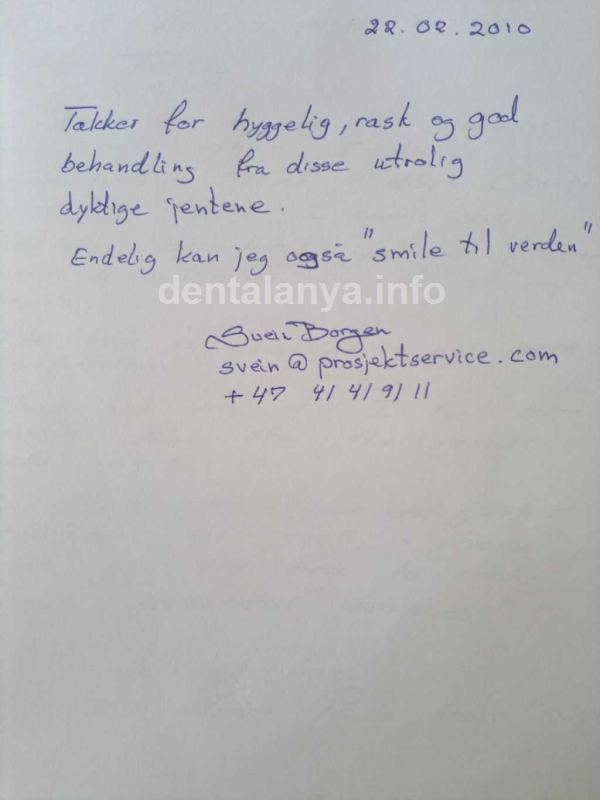 22.02.2010
Takker for hyggelig, rask og god
behandling fra disse utrolig
dyktige jentene.
Endelig kan jeg også "smile til verden"
dentalanya.info
Svein Borgen
svein@prosjektservice.com
+47 41 41 91 11